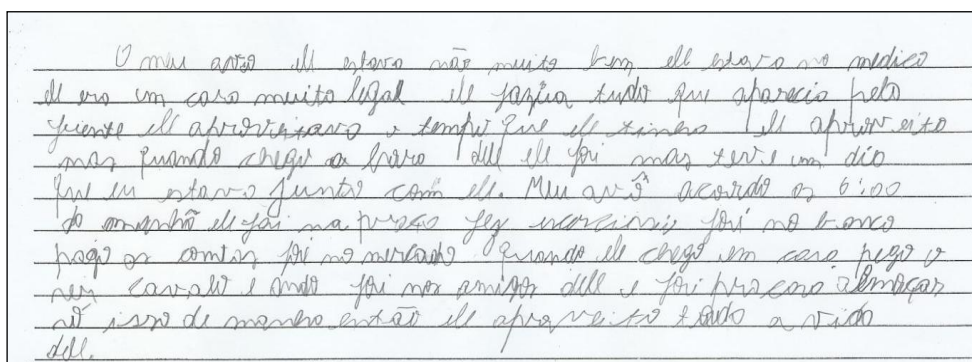 O meu avó ele estava não muito bem ele estava no medico
ele era um cara muito legal ele fazia tudo que aparecia pela
frente ele aproveitava o tempo que ele tinha ele aproveito
mas quando chego a hora dele ele foi mas teve um dia
que eu estava junto com ele. Meu avô acordo as 6:00
da manhã ele foi na praça fez exercisio foi no banco
pago as contas foi no mercado quando ele chego em casa pego o
seu cavalo e ando foi nos amigos dele e foi pra casa almoçar
só isso de manha então ele aproveito toda a vida
dele.